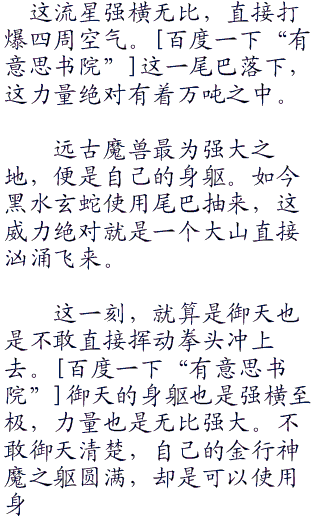 这流星强横无比，直接打
爆四周空气。[百度一下“有
意思书院”]这一尾巴落下，
这力量绝对有着万吨之中。
远古魔兽最为强大之
地，便是自己的身躯。如今
黑水玄蛇使用尾巴抽来，这
威力绝对就是一个大山直接
汹涌飞来。
这一刻，就算是御天也
是不敢直接挥动拳头冲上
去。[百度一下“有意思书
院”]御天的身躯也是强横至
极，力量也是无比强大。不
敢御天清楚，自己的金行神
魔之躯圆满，却是可以使用
身